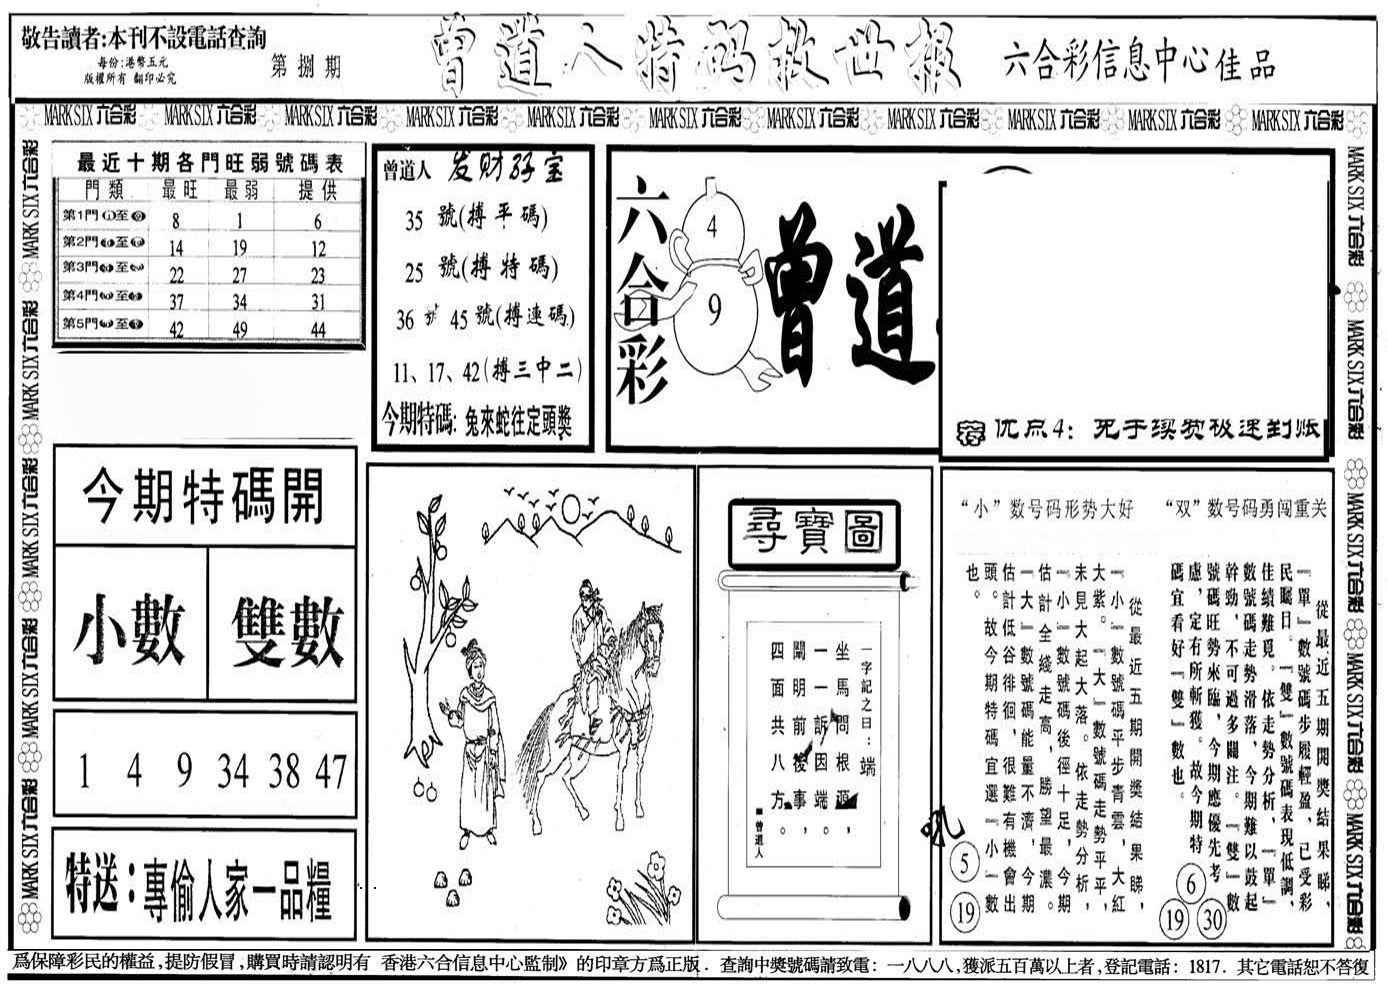 敬告讀者:本刊不設電話查詢
每份:港幣五元
版權所有 翻印必究
第捌期
曾道人特码救世报
六合彩信息中心佳品
MARK SIX 六合彩 MARK SIX 六合彩 MARK SIX 六合彩 MARK SIX 六合彩 MARK SIX 六合彩 MARK SIX 六合彩 MARK SIX 六合彩 MARK SIX 六合彩 MARK SIX 六合彩 MARK SIX 六合彩 MARK SIX 六合彩
最近十期各門旺弱號碼表
門類 最旺 最弱 提供
第1門 至 8 1 6
第2門 至 14 19 12
第3門 至 22 27 23
第4門 至 37 34 31
第5門 至 42 49 44
曾道人 发财
35 號(搏平碼)
25 號(搏特碼)
36 號 45 號(搏連碼)
11、17、42(搏三中二)
今期特碼: 兔來蛇往定頭獎
六合彩
4
9
曾道
优点4:
今期特碼開
小數
雙數
1 4 9 34 38 47
特送:專偷人家一品糧
尋寶圖
一字記之曰:端
坐馬問根源,
一一訴因端。
闡明前後事,
四面共八方。
■曾道人
“小”数号码形势大好
從最近五期開獎結果睇,
『小』數號碼平步青雲,大紅
大紫。『大』數號碼走勢平平,
未見大起大落。依走勢分析,
『小』數號碼後徑十足,今期
估計全綫走高,勝望最濃。
『大』數號碼能量不濟,今期
估計低谷徘徊,很難有機會出
頭。故今期特碼宜選『小』數
也。
5
19
“双”数号码勇闯重关
從最近五期開獎結果睇,
『單』數號碼步履輕盈,已受彩
民矚目。『雙』數號碼表現低調,
佳績難覓。依走勢分析,『單』
數號碼走勢滑落,今期難以鼓起
幹勁,不可過多關注。『雙』數
號碼旺勢來臨,今期應優先考
慮,定有所斬獲。故今期特
碼宜看好『雙』數也。
6
19 30
爲保障彩民的權益,提防假冒,購買時請認明有 香港六合信息中心監制》的印章方爲正版. 查詢中獎號碼請致電: 一八八八,獲派五百萬以上者,登記電話: 1817. 其它電話恕不答復